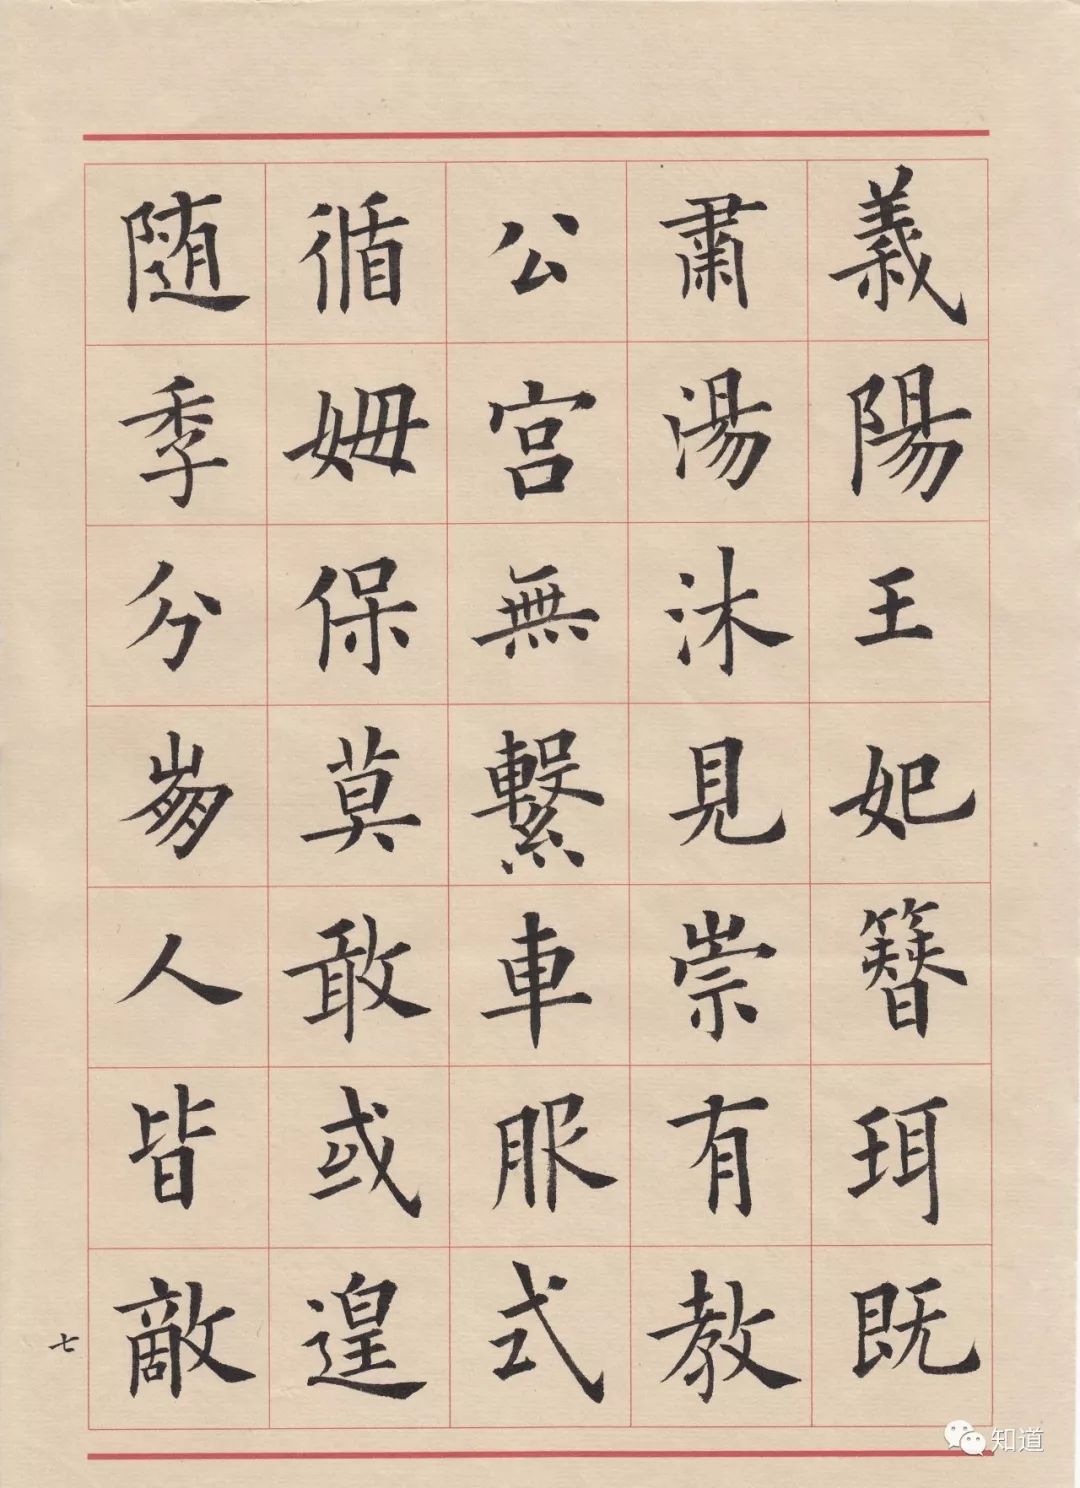 義陽王妃簪珥既
肅湯沐見崇有教
公宮無繫車服式
循姆保莫敢或遑
随季分崩人皆敵
七
知道